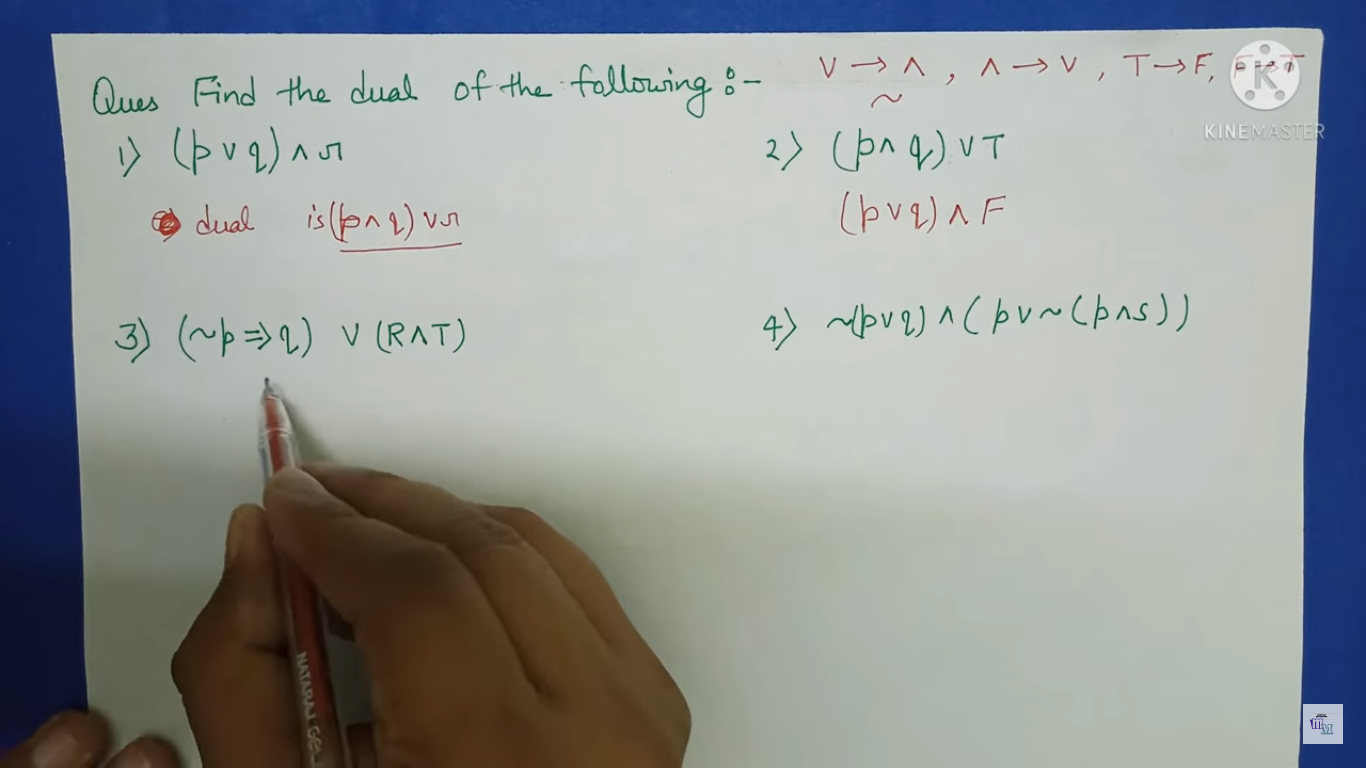 Ques Find the dual of the following :- ∨ → ∧ , ∧ → ∨ , T → F, F → T
~
KINEMASTER
1) (p ∨ q) ∧ r
2) (p ∧ q) ∨ T
dual is (p ∧ q) ∨ r
(p ∨ q) ∧ F
3) (~p ⇒ q) ∨ (R ∧ T)
4) ~(p ∨ q) ∧ (p ∨ ~(p ∧ s))
NATARAJ